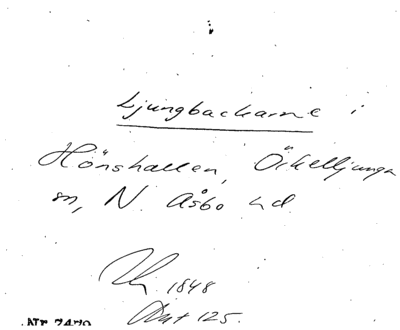 Ljungbackarne i
Hönshallen, Örkelljunga
sn, N. Åsbo hd
1848
125.
Nr 7479